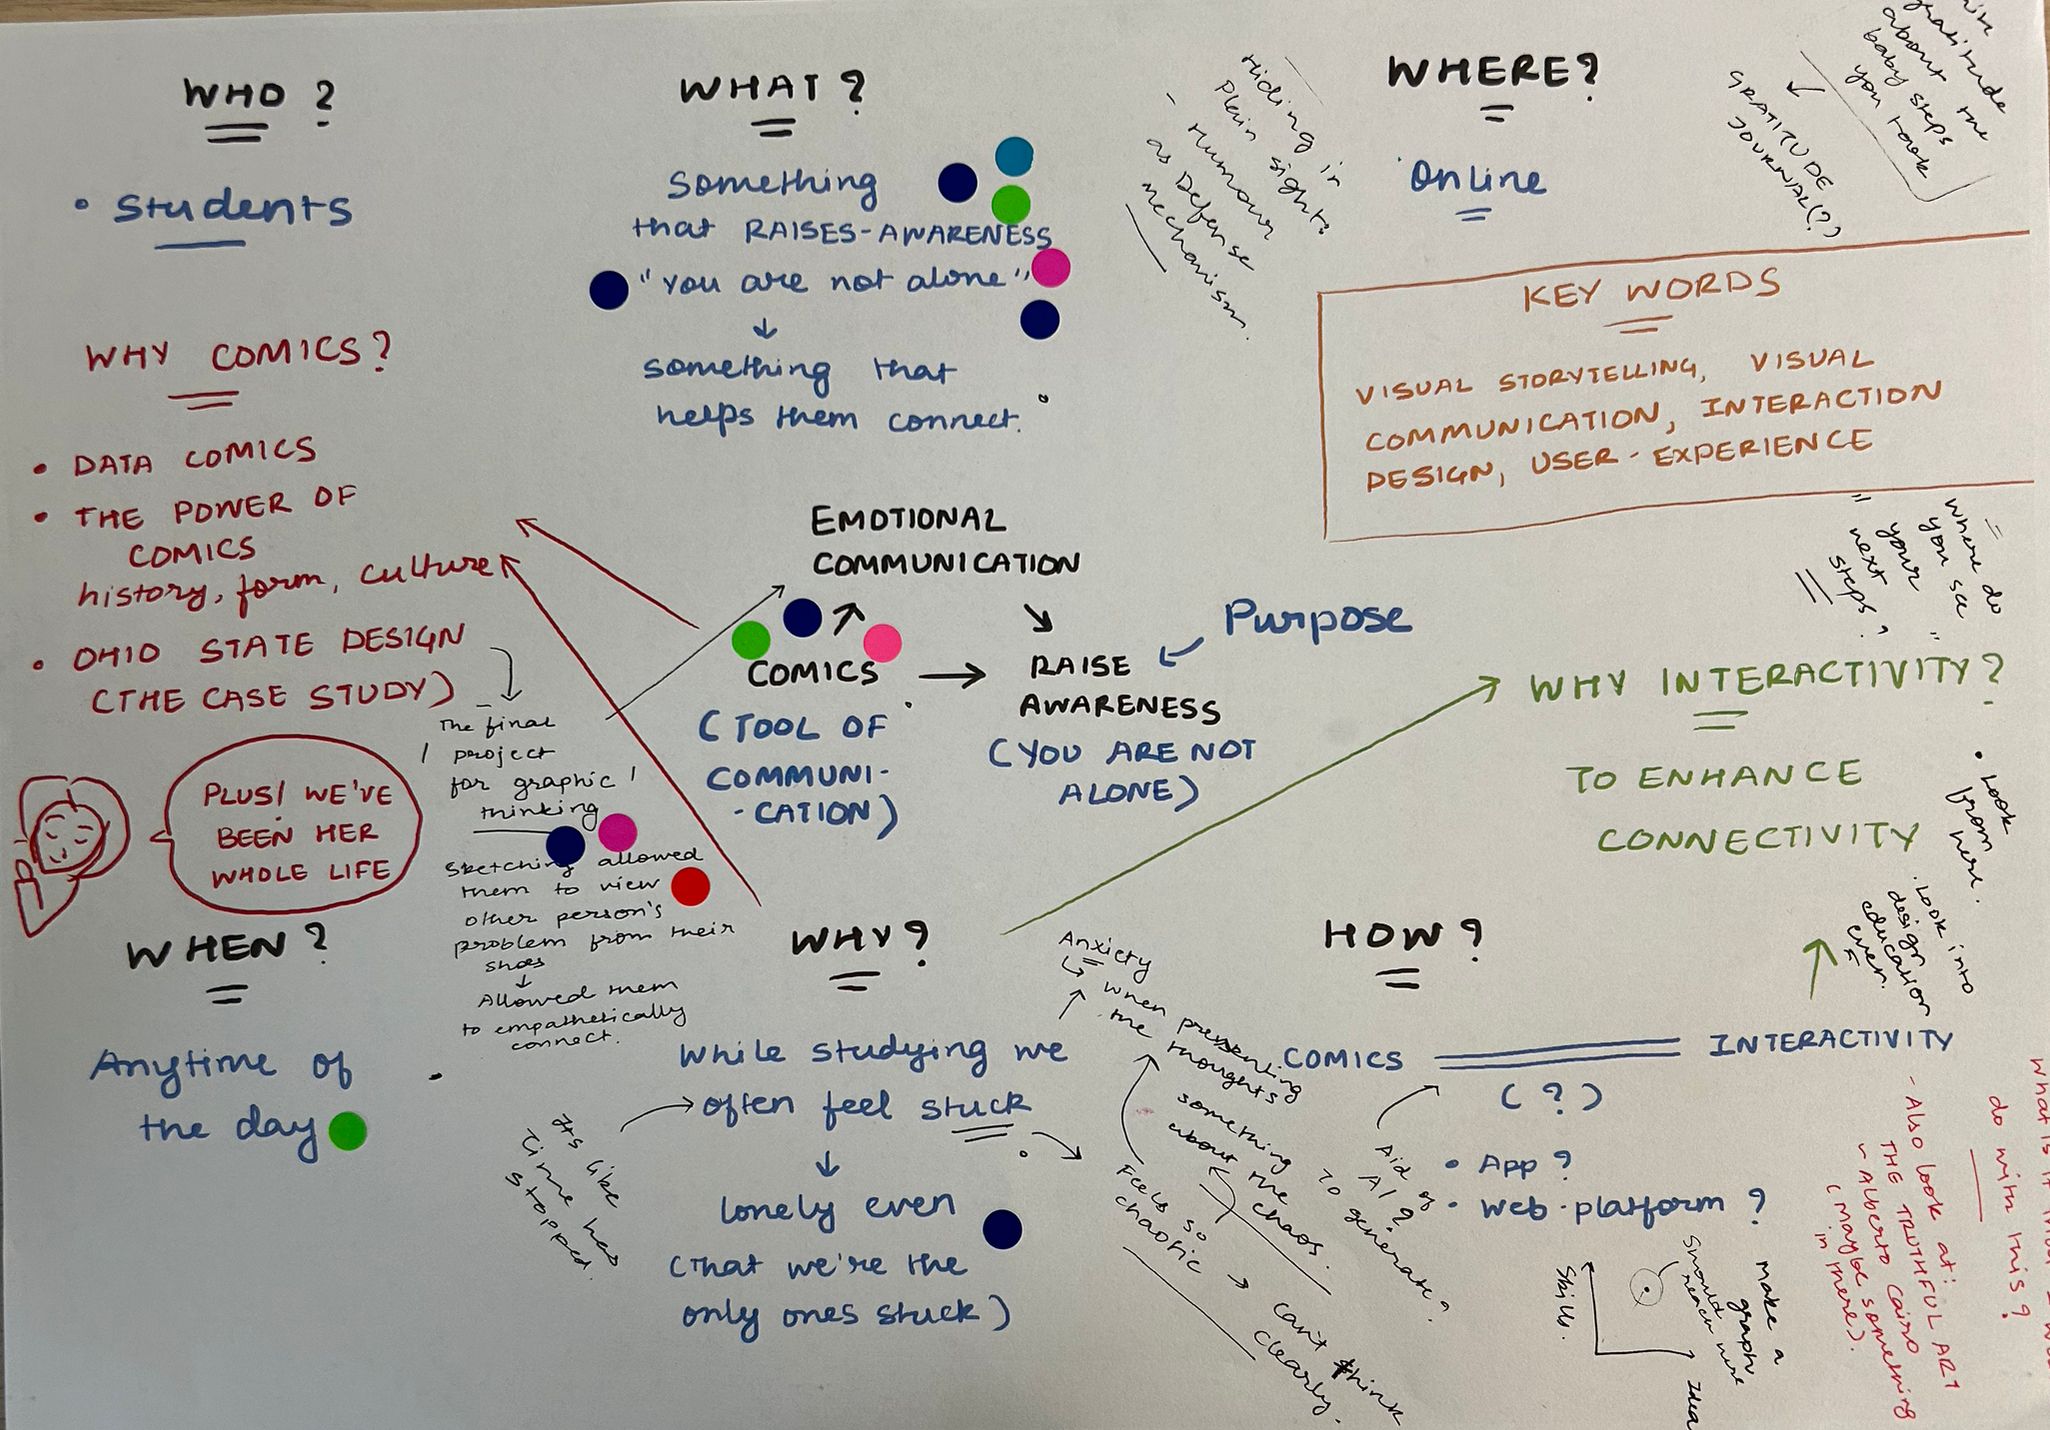 WHO?
• Students
WHAT?
Something
that RAISES-AWARENESS
"you are not alone"
↓
something that
helps them connect.
Hiding in
Plain sight.
- Humour
as Defense
mechanism.
WHERE?
Online
gratitude
about the
baby steps
you took
↓
GRATITUDE
JOURNAL(?)
KEY WORDS
VISUAL STORYTELLING, VISUAL
COMMUNICATION, INTERACTION
DESIGN, USER-EXPERIENCE
WHY COMICS?
• DATA COMICS
• THE POWER OF
COMICS
history, form, culture
• OHIO STATE DESIGN
(THE CASE STUDY)
The final
project
for graphic
thinking
Sketching allowed
them to view
other person's
problem from their
shoes
↓
Allowed them
to empathetically
connect.
PLUS! WE'VE
BEEN HER
WHOLE LIFE
EMOTIONAL
COMMUNICATION
COMICS → RAISE
AWARENESS
(TOOL OF
COMMUNI-
-CATION)
(YOU ARE NOT
ALONE)
Purpose
where do
you see
your
next
steps?
WHY INTERACTIVITY?
TO ENHANCE
CONNECTIVITY
• Look
from
here.
• Look into
design
education
even.
WHEN?
Anytime of
the day
WHY?
While studying we
often feel stuck
↓
lonely even
(that we're the
only ones stuck)
Its like
time has
stopped.
Anxiety
↳ when presenting
the thoughts
something
about the
chaos.
Feels so
chaotic → can't think
clearly.
HOW?
COMICS INTERACTIVITY
(?)
Aid of
AI?
To generate?
• App?
• Web-platform?
make a
graph
Should
reach here
Skills.
Idea
- Also look at:
THE TRUTHFUL ART
- Alberto Cairo
(maybe something
in there).
do with this?